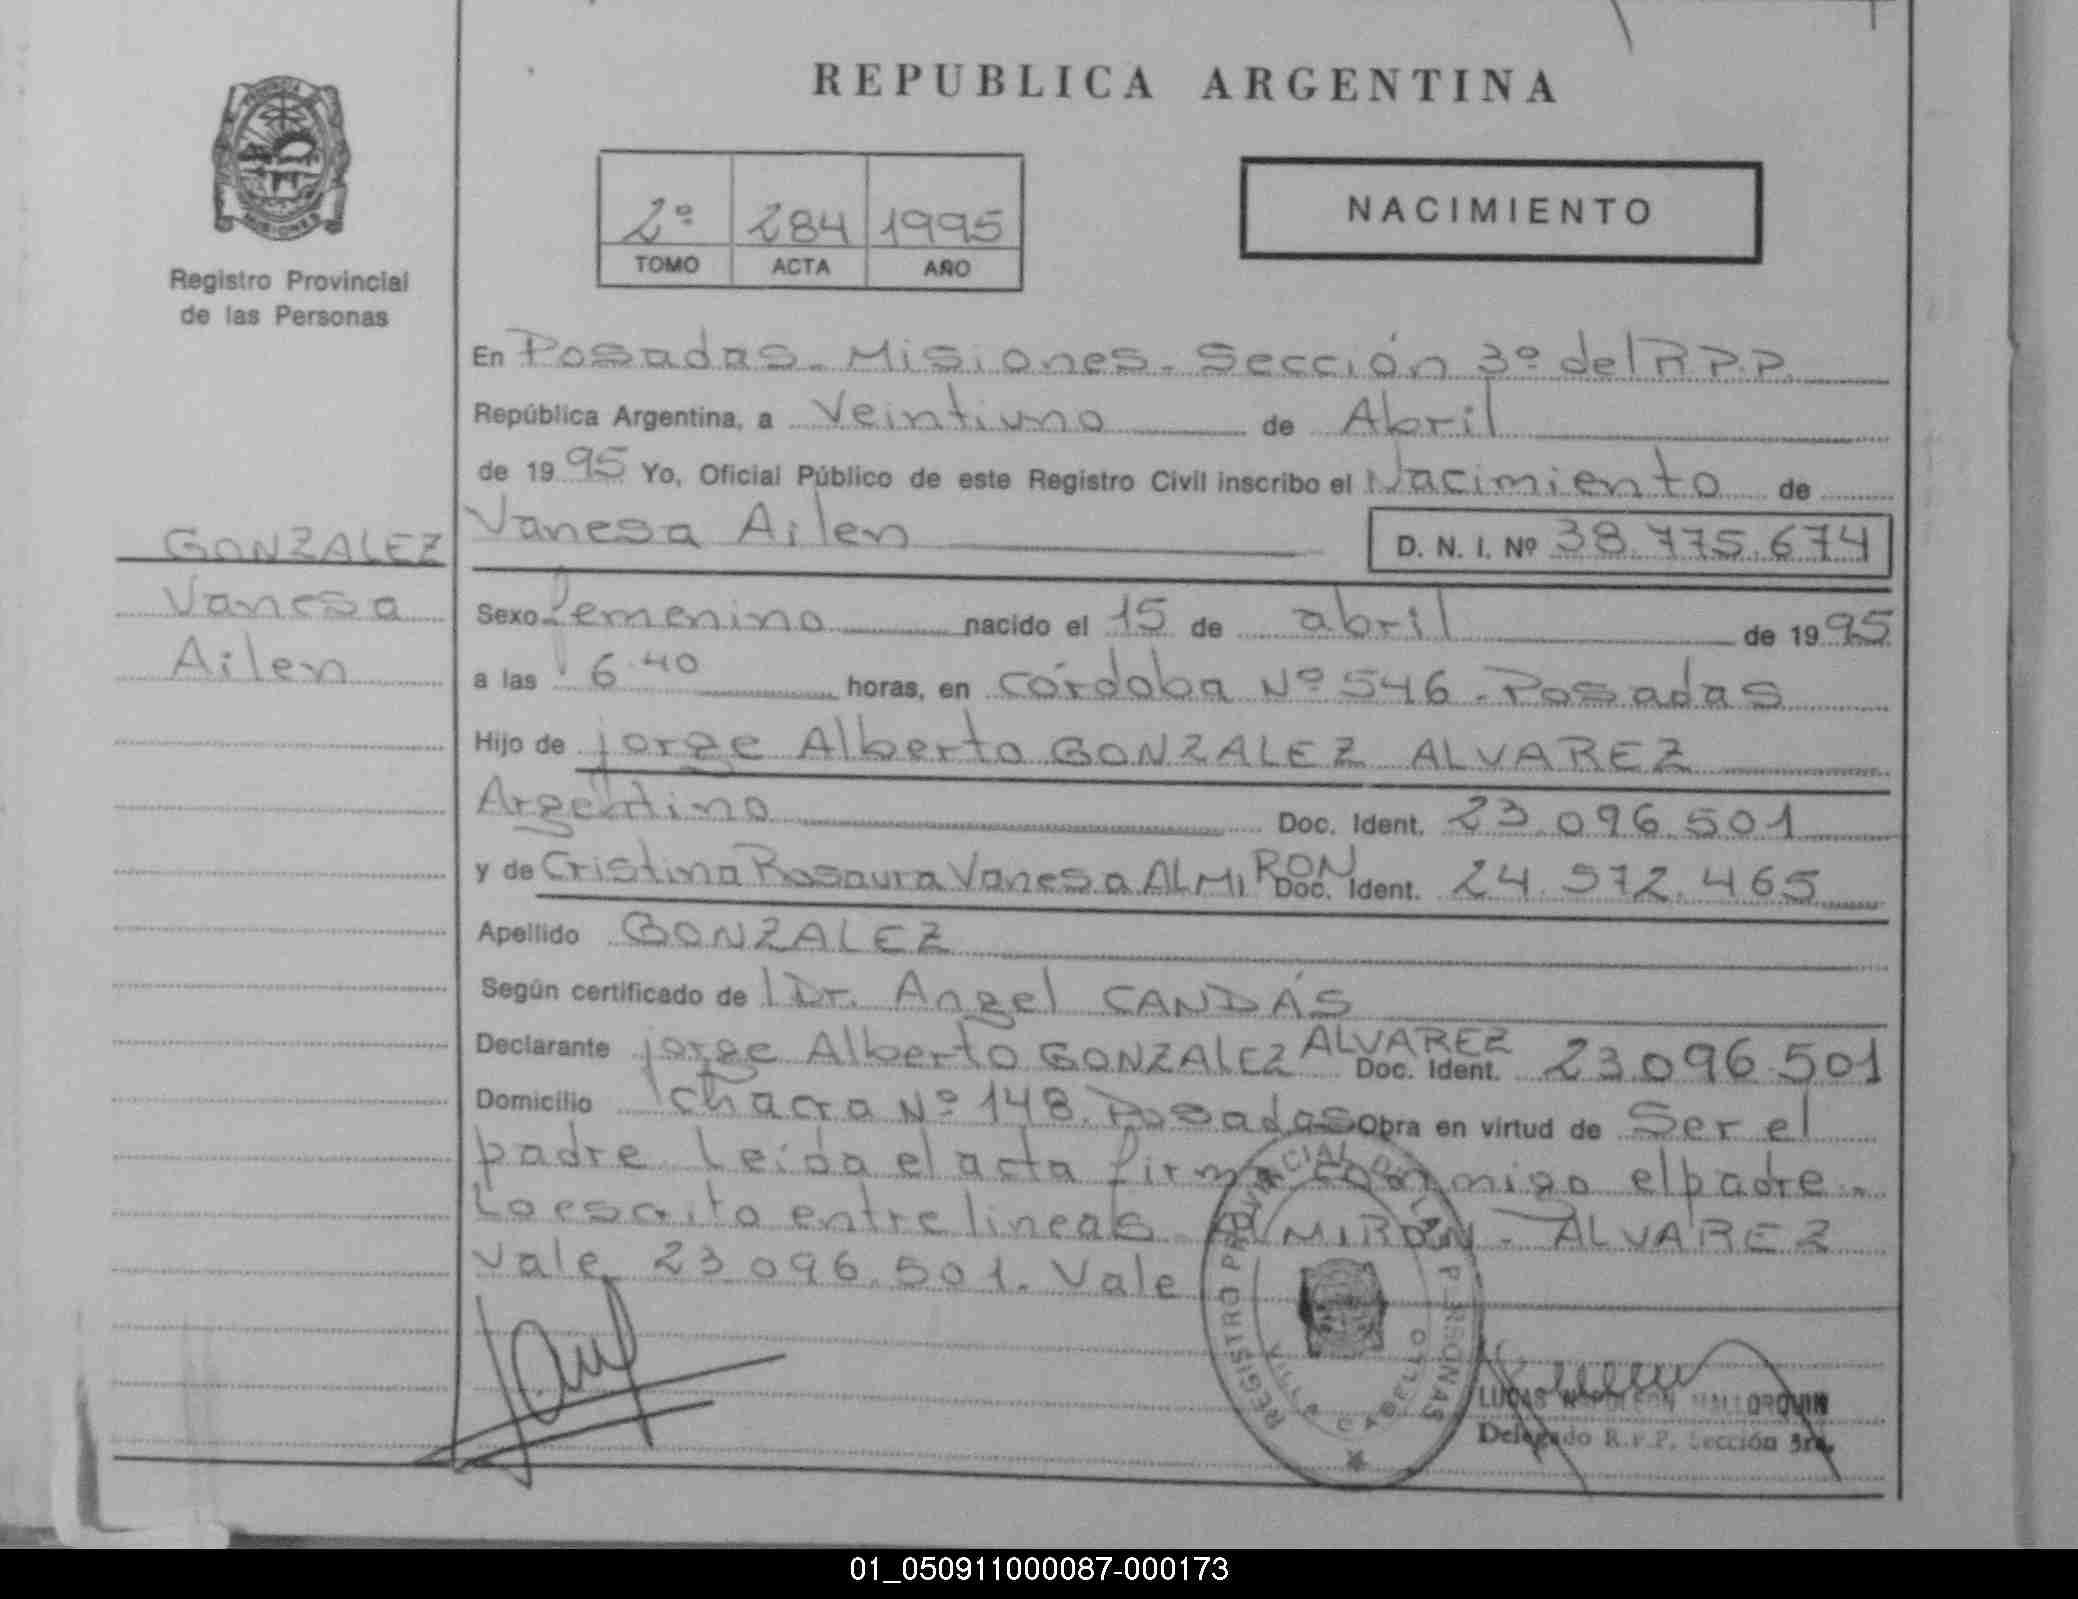 REPUBLICA ARGENTINA
MISIONES
Registro Provincial
de las Personas
2º 284 1995
TOMO ACTA AÑO
NACIMIENTO
En Posadas - Misiones - Sección 3º del R.P.P.
República Argentina, a Veintiuno de Abril
de 1995 Yo, Oficial Público de este Registro Civil inscribo el Nacimiento de
Vanesa Ailen D. N. I. Nº 38.775.674
GONZALEZ
Vanesa
Ailen
Sexo femenino nacido el 15 de abril de 1995
a las 6.40 horas, en Córdoba Nº 546 - Posadas
Hijo de jorge Alberto GONZALEZ ALVAREZ
Argentino Doc. Ident. 23.096.501
y de Cristina Rosaura Vanesa ALMIRON Doc. Ident. 24.572.465
Apellido GONZALEZ
Según certificado de Dr. Angel CANDÁS
Declarante jorge Alberto GONZALEZ ALVAREZ Doc. Ident. 23.096.501
Domicilio Chacra Nº 148. Posadas obra en virtud de Ser el
padre. Leída el acta firma conmigo el padre.-
Lo escrito entre lineas ALMIRON - ALVAREZ
Vale 23.096.501. Vale
REGISTRO PROVINCIAL DE LAS PERSONAS
VILLA CABELLO
LUCAS NAPOLEON MALLORQUIN
Delegado R.P.P. Sección 3ra.
01_050911000087-000173